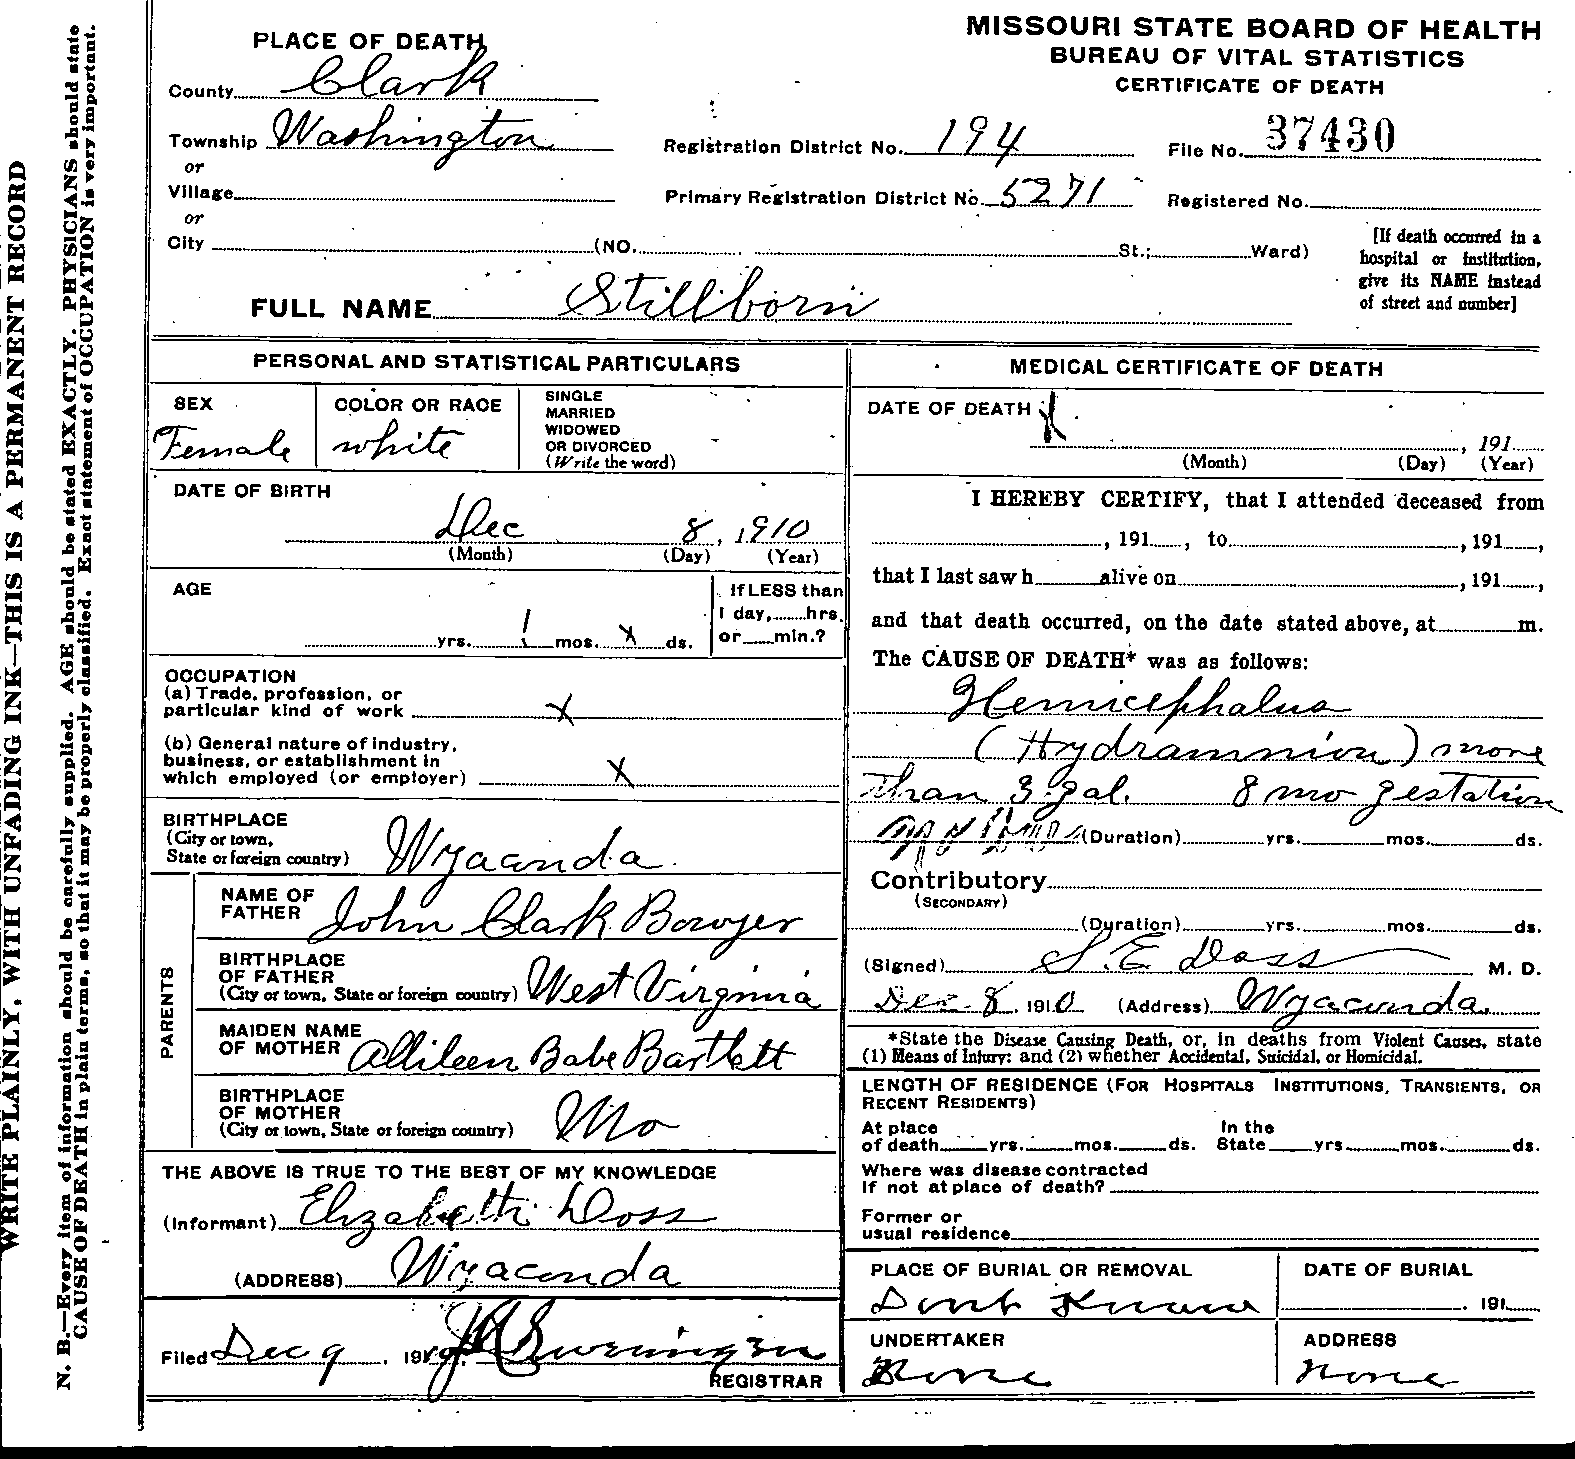 WRITE PLAINLY, WITH UNFADING INK—THIS IS A PERMANENT RECORD
N. B.—Every item of information should be carefully supplied. AGE should be stated EXACTLY. PHYSICIANS should state
CAUSE OF DEATH in plain terms, so that it may be properly classified. Exact statement of OCCUPATION is very important.
MISSOURI STATE BOARD OF HEALTH
BUREAU OF VITAL STATISTICS
CERTIFICATE OF DEATH
PLACE OF DEATH
County Clark
Township Washington
or
Village
or
City (NO. St.; Ward)
Registration District No. 194 File No. 37430
Primary Registration District No. 5271 Registered No.
[If death occurred in a
hospital or institution,
give its NAME instead
of street and number]
FULL NAME Stillborn
PERSONAL AND STATISTICAL PARTICULARS
SEX
Female
COLOR OR RACE
white
SINGLE
MARRIED
WIDOWED
OR DIVORCED
(Write the word)
DATE OF BIRTH
Dec 8, 1910
(Month) (Day) (Year)
AGE
yrs. 1 mos. X ds.
If LESS than
1 day, hrs.
or min.?
OCCUPATION
(a) Trade, profession, or
particular kind of work X
(b) General nature of industry,
business, or establishment in
which employed (or employer) X
BIRTHPLACE
(City or town,
State or foreign country) Wyaconda
PARENTS
NAME OF
FATHER John Clark Bowyer
BIRTHPLACE
OF FATHER
(City or town, State or foreign country) West Virginia
MAIDEN NAME
OF MOTHER Allileen Babe Bartlett
BIRTHPLACE
OF MOTHER
(City or town, State or foreign country) Mo
THE ABOVE IS TRUE TO THE BEST OF MY KNOWLEDGE
(Informant) Elizabeth Doss
(ADDRESS) Wyaconda
Filed Dec 9, 1910
REGISTRAR
MEDICAL CERTIFICATE OF DEATH
DATE OF DEATH
, 191
(Month) (Day) (Year)
I HEREBY CERTIFY, that I attended deceased from
, 191 , to , 191 ,
that I last saw h alive on , 191 ,
and that death occurred, on the date stated above, at m.
The CAUSE OF DEATH* was as follows:
Hemicephalus
(Hydramnion) more
than 3 gal. 8 mo gestation
(Duration) yrs. mos. ds.
Contributory
(SECONDARY)
(Duration) yrs. mos. ds.
(Signed) S. E. Doss M. D.
Dec 8, 1910 (Address) Wyaconda.
*State the Disease Causing Death, or, in deaths from Violent Causes, state
(1) Means of Injury; and (2) whether Accidental, Suicidal, or Homicidal.
LENGTH OF RESIDENCE (FOR HOSPITALS INSTITUTIONS, TRANSIENTS, OR
RECENT RESIDENTS)
At place In the
of death yrs. mos. ds. State yrs. mos. ds.
Where was disease contracted
if not at place of death?
Former or
usual residence
PLACE OF BURIAL OR REMOVAL
Dont Know
DATE OF BURIAL
, 191
UNDERTAKER
None
ADDRESS
None